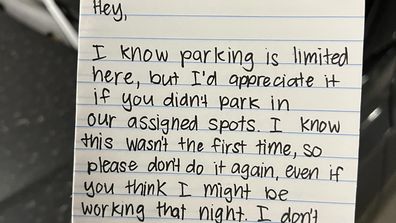 Hey,
I know parking is limited
here, but I'd appreciate it
if you didn't park in
our assigned spots. I know
this wasn't the first time, so
please don't do it again, even if
you think I might be
working that night. I don't